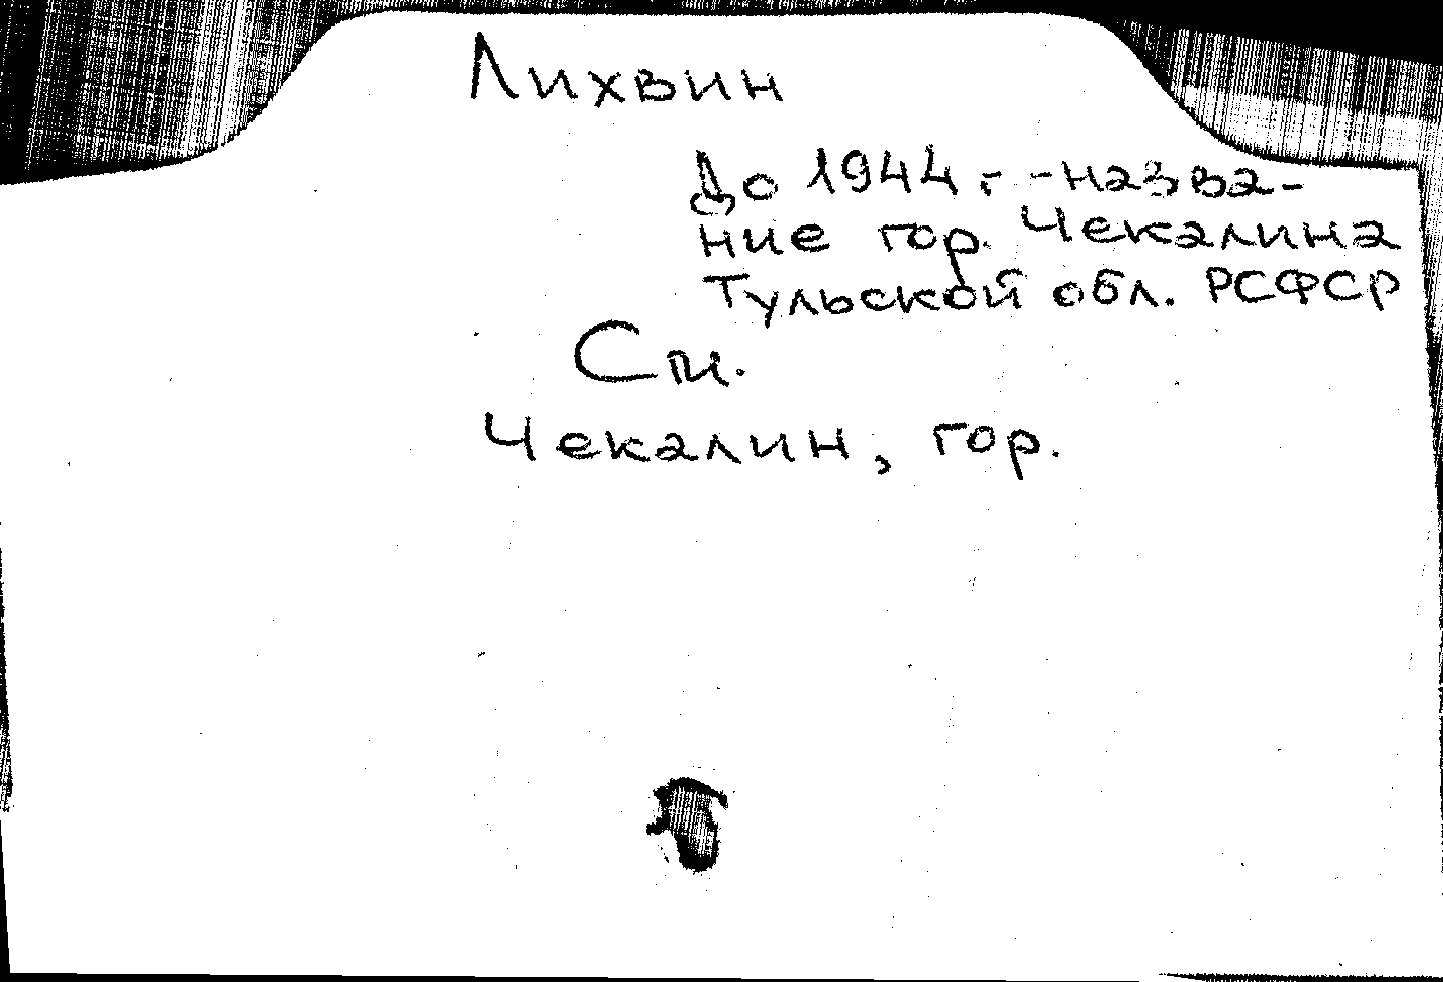 Лихвин
До 1944 г. - назва-
ние гор. Чекалина
Тульской обл. РСФСР
См.
Чекалин, гор.